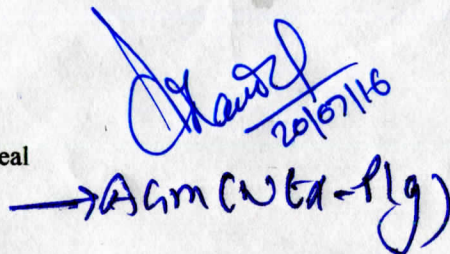 20/07/16
eal
→AGm (NEd-Plg)